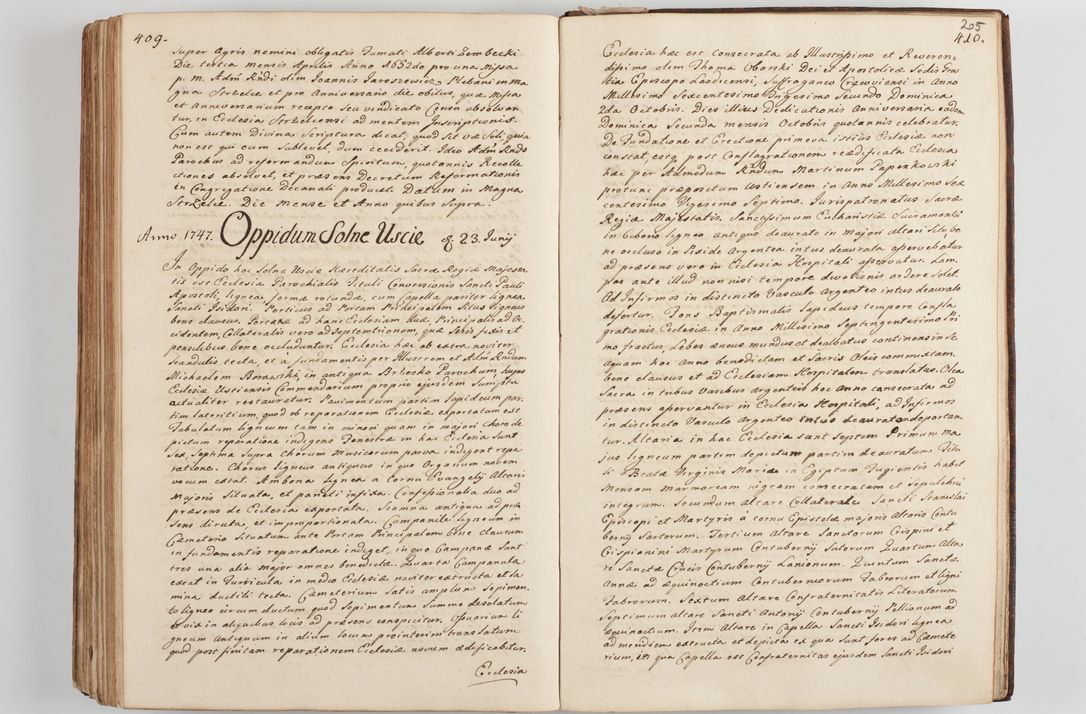 409.
super Agris nemini obligatis Famati Alberti Zembecki
Die tertia mensis Aprilis Anno 1652do pro una Missa
p. m. Adm Rndi olim Joannis Jaroszewicz Plebani in Ma-
gna Strzelce et pro Anniversario die obitus, quæ Missa
et Anniversarium recepto seu vendicato Censu absolvan
tur, in Ecclesia Strzelicensi ad mentem Inscriptionis.
Cum autem Divina Scriptura dicat, quod sit væ soli, quia
non est qui eum sublevet, dum ceciderit. Ideo Adm Rndo
Parochus ad reformandum Spiritum, quotannis Recolle
ctiones absolvet, et præsens Decretum Reformationis
in Congregatione Decanali producet. Datum in Magna
Strzelce. Die Mense et Anno quibus Supra.
Anno 1747. Oppidum Solne Uscie 23. Junij
In Oppido hoc Solne Uscie Hæreditatis Sacræ Regiæ Majesta
tis est Ecclesia Parochialis Tituli Conversionis Sancti Pauli
Apostoli, lignea formæ rotundæ, cum Capella pariter lignea
Sancti Isidori. Porticus ad Portam Principalem situs ligneus
bene clausus. Portæ ad hanc Ecclesiam duæ Principalis ad Oc
cidentem, Collateralis vero ad Septemtrionem, quæ Sebis fixis et
pensilibus bene occluduntur. Ecclesia hæc ab extra noviter
Scandulis tecta, et a fundamentis per Illustrem et Adm Rndum
Michaelem Borawski, in antiqua Brzesko Parochum, hujus
Ecclesiæ Ustiensis Commendarium proprio ejusdem Sumptu
actualiter restauratur. Pavimentum partim lapideum par
tim lateritium, quod ob reparationem Ecclesiæ exportatum est
Tabulatum ligneum tam in minori quam in majori choro de
pictum reparatione indigens Fenestræ in hac Ecclesia Sunt
Sex, Septima Supra Chorum Musicorum parva indigent repa
ratione. Chorus ligneus antiquus in quo Organum novem
vocum extat. Ambona lignea a cornu Evangelij Altaris
Majoris Situata, et parieti infixa. Confessionalia duo ad
præsens de Ecclesia exportata. Scamna antiqua ad præ
sens diruta, et improportionata. Campanile ligneum in
Cæmeterio Situatum ante Portam Principalem bene clausum
in fundamentis reparatione indiget, in quo Campanæ Sunt
tres una alia major omnes benedictæ. Quarta Campanula
extat in Turricula in medio Ecclesiæ noviter extructa et la
mina ductili tecta. Cæmeterium Satis amplum Sepimen
to ligneo circum ductum quod Sepimentum Summe desolatum
et vix in aliquibus locis ad præsens conspicitur. Ossuarium li
gneum antiquum in alium locum pro interim translatum
quod post finitam reparationem Ecclesiæ novum ædificabitur.
Ecclesia
205
410.
Ecclesia hæc est consecrata ab Illustrissimo et Reveren-
dissimo olim Thoma Oborski Dei et Apostolicæ Sedis Gra
tia Episcopo Laodicensi, Suffraganeo Cracoviensi in Anno
Millesimo Sexcentesimo Trigesimo Secundo Dominica
2da Octobris. Dies illius Dedicationis Anniversaria eadem
Dominica Secunda mensis Octobris quotannis celebratur.
De Fundatione et Erectione primeva istius Ecclesiæ non
constat, estq post Conflagrationem reædificata Ecclesia
hæc per Admodum Rndum Martinum Papenkowski
protunc præpositum Ustiensem in Anno Millesimo Sex
centesimo Vigesimo Septimo. Jurispatronatus Sacræ
Regiæ Majestatis. Sanctissimum Euchanistiæ Sacramentu
in Ciborio ligneo antiquo deaurato in Majori Altari Sito, be
ne occluso in Piside Argentea intus deaurata asservebatur
ad præsens vero in Ecclesia Hospitali asservatur. Lam
pas ante illud non nisi tempore devotionis ardere Solet.
Ad Infirmos in distincto Vasculo Argenteo intus deaurato
defertur. Fons Baptismalis lapideus tempore confla
grationis Ecclesiæ in Anno Millesimo Septingentesimo Pri
mo fractus, Lebes æneus mundus et dealbatus continens in Se
aquam hoc Anno benedictam et Sacris Oleis commixtam.
bene clausus et ad Ecclesiam Hospitalem translatus. Olea
Sacra in tribus Vasibus argenteis hoc Anno consecrata ad
præsens asservantur in Ecclesia Hospitali, ad Infirmos
in distincto Vasculo Argenteo intus deaurato deportan
tur. Altaria in hac Ecclesia sunt Septem Primum Ma
jus ligneum partem depictum partim deauratum Titu
li Beatæ Virginis Mariæ in Egiptum Fugientis habet
Mensam Marmoream nigram consecratam et Sepulchrū
integrum. Secundum Altare Collaterale Sancti Stanislai
Episcopi et Martyris a cornu Epistolæ majoris Altaris Contu
bernij Sartorum. Tertium Altare Sanctorum Crispini et
Crispioniani Martyrum Contubernij Sutorum Quartum Alta
re Sanctæ Crucis Contubernij Lanionum. Quintum Sanctæ
Annæ ad æquinoctium Contubernorum Fabrorum et ligni
Fabrorum. Sextum Altare Confraternitatis Literatorum
Septimum Altare Sancti Antonij Contubernij Pellionum ad
æquinoctum. Item Altare in Capella Sancti Isidori lignea
ad meridiem extructa et depicta ex qua Sunt fores ad Cæmete
rium, in qua Capella est Confraternitas ejusdem Sancti Isidori